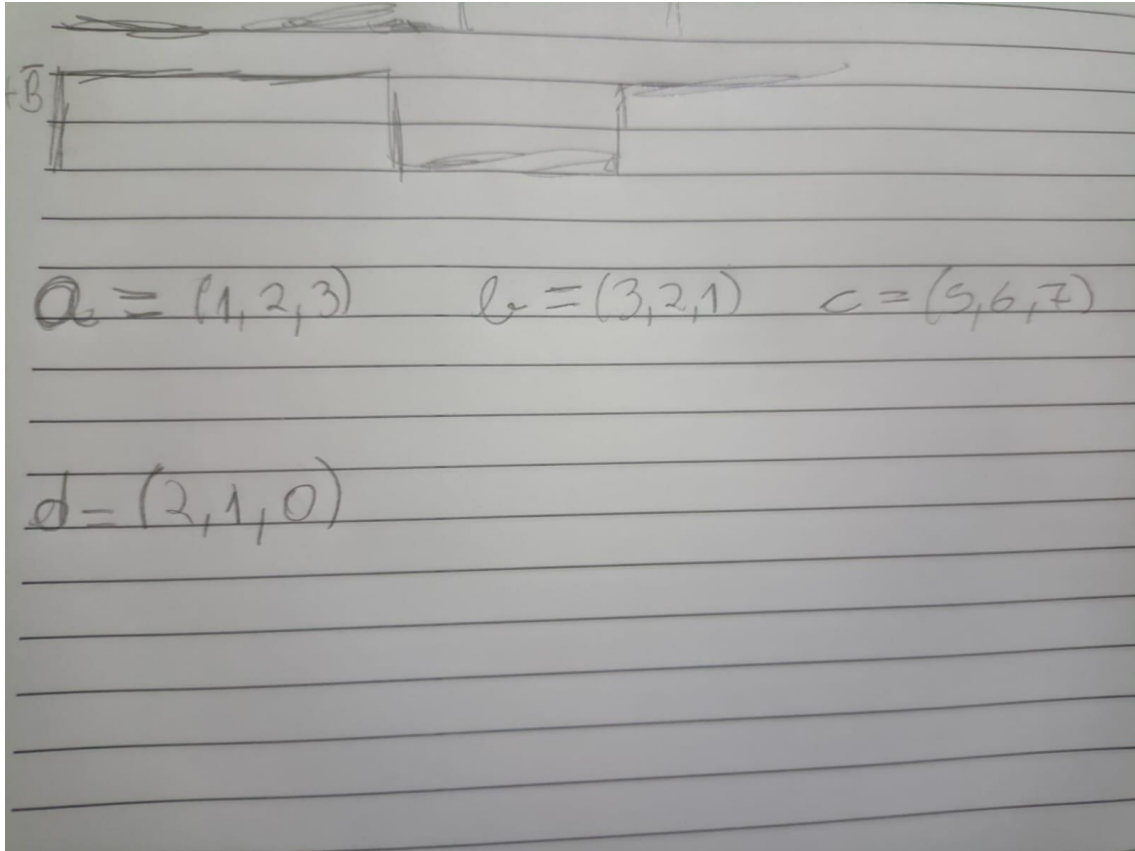 +B̅
a = (1,2,3) b = (3,2,1) c = (5,6,7)
d = (2,1,0)